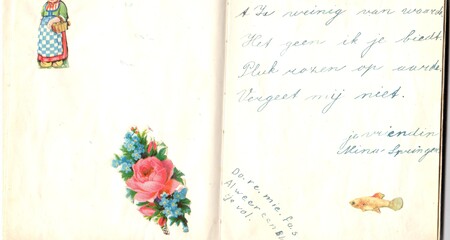 't Is weinig van waarde
Het geen ik je biedt.
Pluk rozen op aarde
Vergeet mij niet.
je vriendin
Mina Springer
Do. re. mie. fa. s
Al weer een Bl
tje vol.